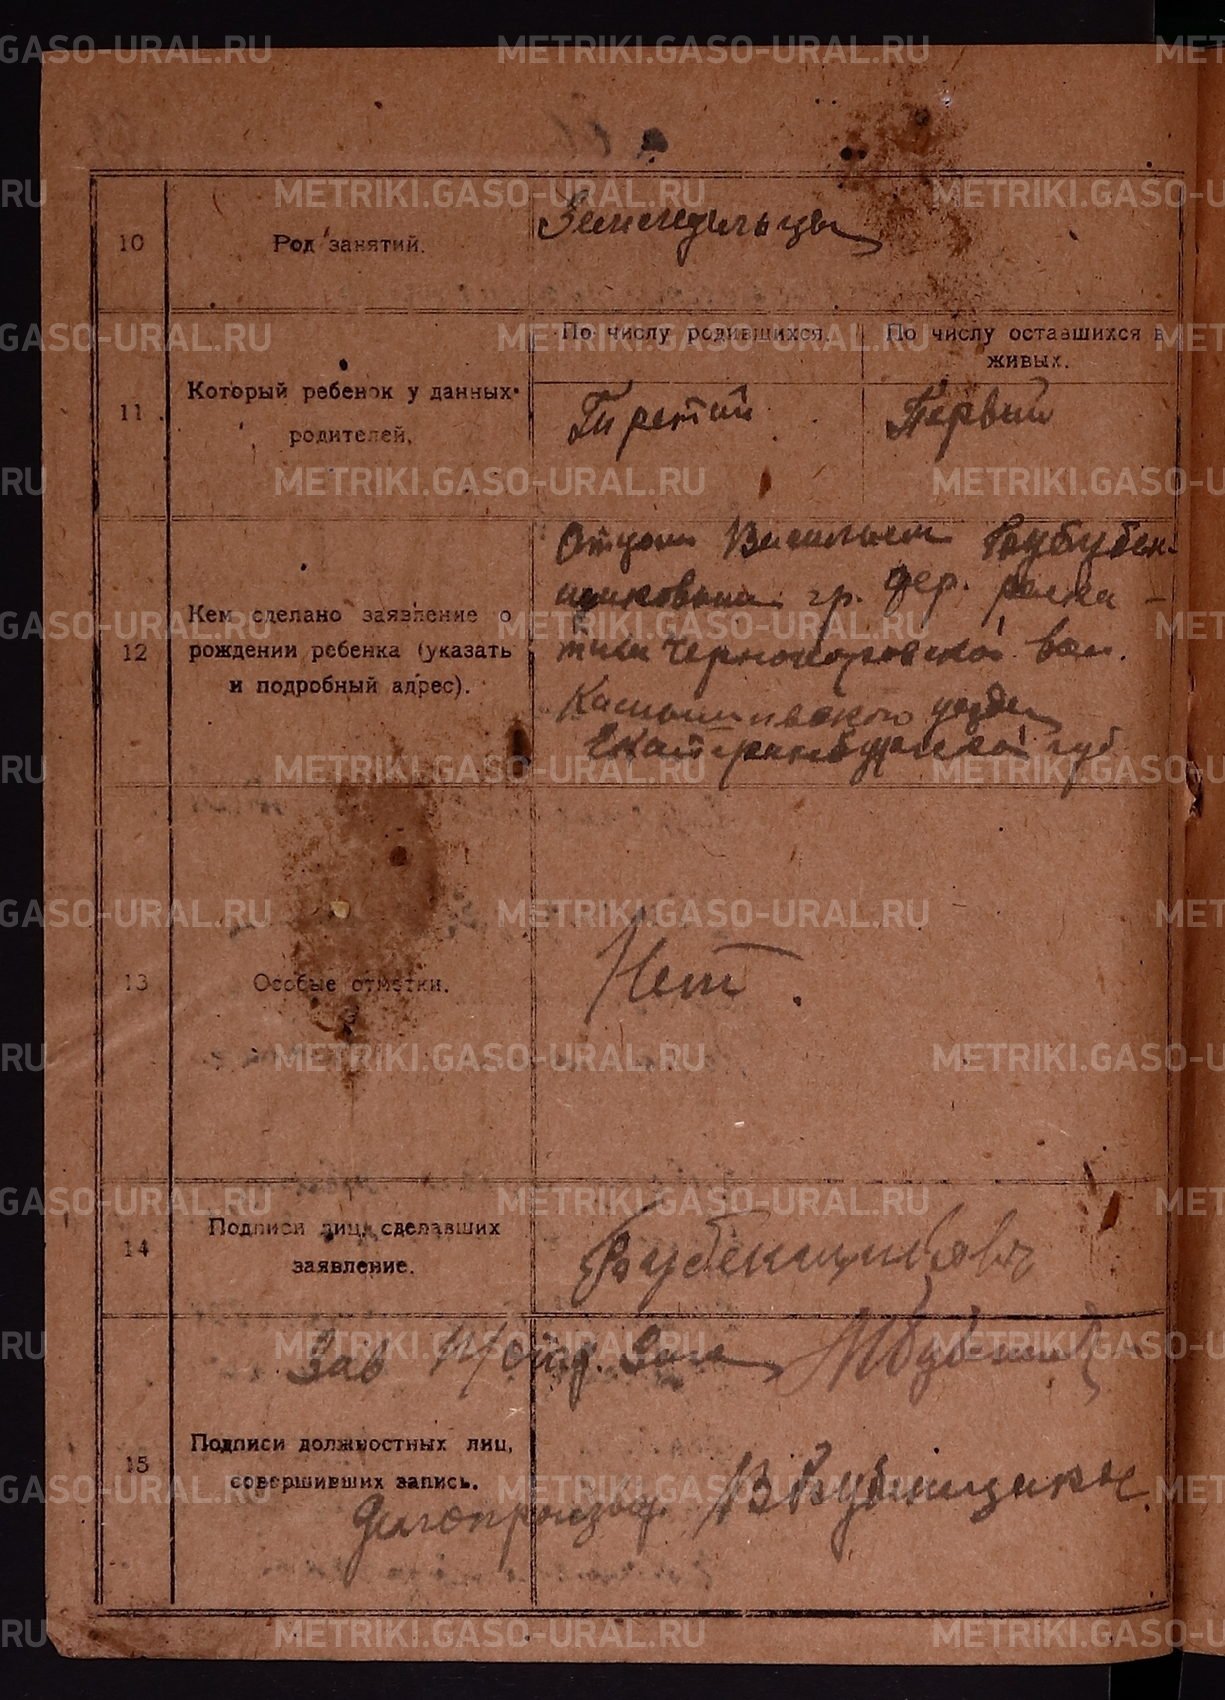 METRIKI.GASO-URAL.RU
10
Род занятий.
Земледельцы
По числу родившихся.
По числу оставшихся в
живых.
11
Который ребенок у данных
родителей.
Третий
Первый
12
Кем сделано заявление о
рождении ребенка (указать
и подробный адрес).
Отцом Васильем
гр. дер.
Черн вол.
Камышловского уезда
Екатеринбургской губ
13
Особые отметки.
Нет.
14
Подписи лиц, сделавших
заявление.
Зав П/отд. Зап
15
Подписи должностных лиц,
совершивших запись.
Делопроизвод.